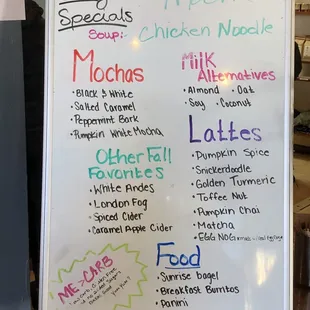 Specials
Soup: Chicken Noodle
Mochas
• Black & White
• Salted Caramel
• Peppermint Bark
• Pumpkin White Mocha
Milk
Alternatives
• Almond • Oat
• Soy • Coconut
Other Fall
Favorites
• White Andes
• London Fog
• Spiced Cider
• Caramel Apple Cider
Lattes
• Pumpkin Spice
• Snickerdoodle
• Golden Turmeric
• Toffee Nut
• Pumpkin Chai
• Matcha
• EGG NOG
ME > CARB
Food
• Sunrise bagel
• Breakfast Burritos
• Panini